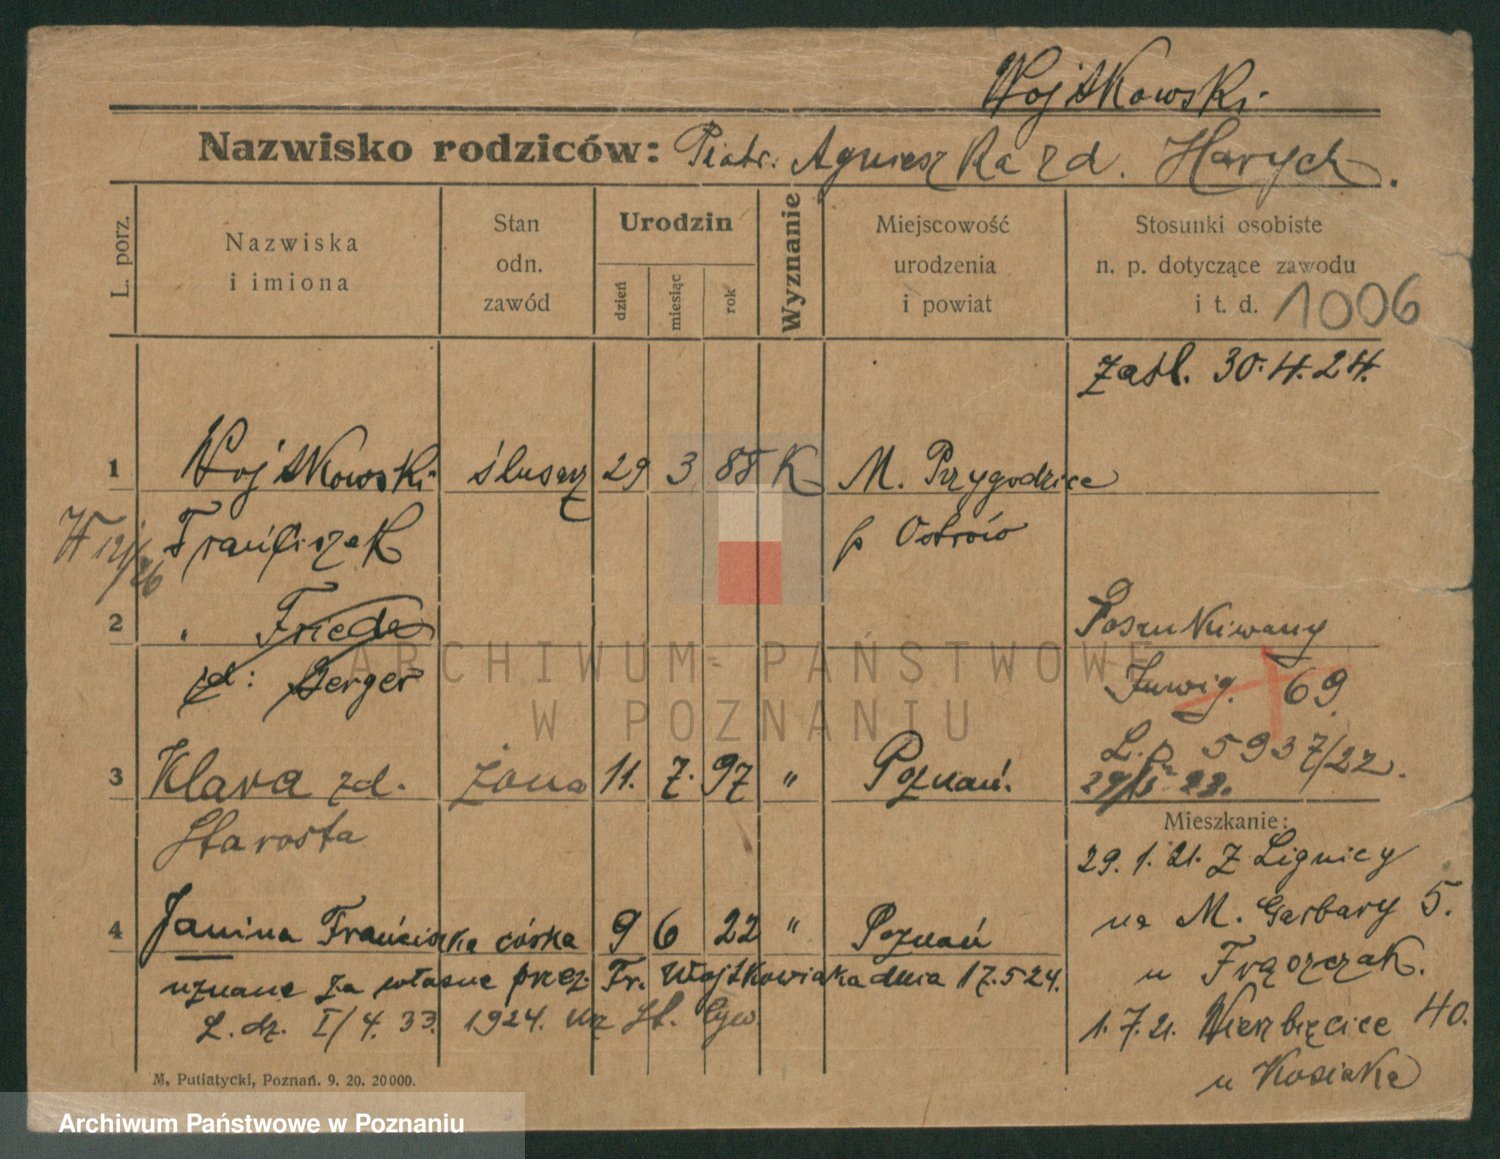 Wojtkowski
Nazwisko rodziców: Piotr. Agnieszka zd. Harych.
L. porz.
Nazwiska
i imiona
Stan
odn.
zawód
Urodzin
dzień
miesiąc
rok
Wyznanie
Miejscowość
urodzenia
i powiat
Stosunki osobiste
n. p. dotyczące zawodu
i t. d. 1006
Zaśl. 30.4.24.
1 Wojtkowski ślusarz 29 3 88 K M. Przygodzice
Franciszek p Ostrów
2 " Frieda
zd: Berger
Poszukiwany
69
L. p. 5937/22.
3 Klara zd. żona 11. 7. 97 " Poznań.
Starosta
Mieszkanie:
29. 1. 21. Z Lignicy
na M. Garbary 5.
u Frąszczak.
1. 7. 21. Wierzbięcice 40.
u Kosiaka
4 Janina Franciszka córka 9 6 22 " Poznań
uznane za własne przez Fr. Wojtkowiaka dnia 17.5.24.
L. dz. I/4. 33. 1924. Urz St. Cyw.
M. Putiatycki, Poznań. 9. 20. 20000.
ARCHIWUM PAŃSTWOWE
W POZNANIU
Archiwum Państwowe w Poznaniu